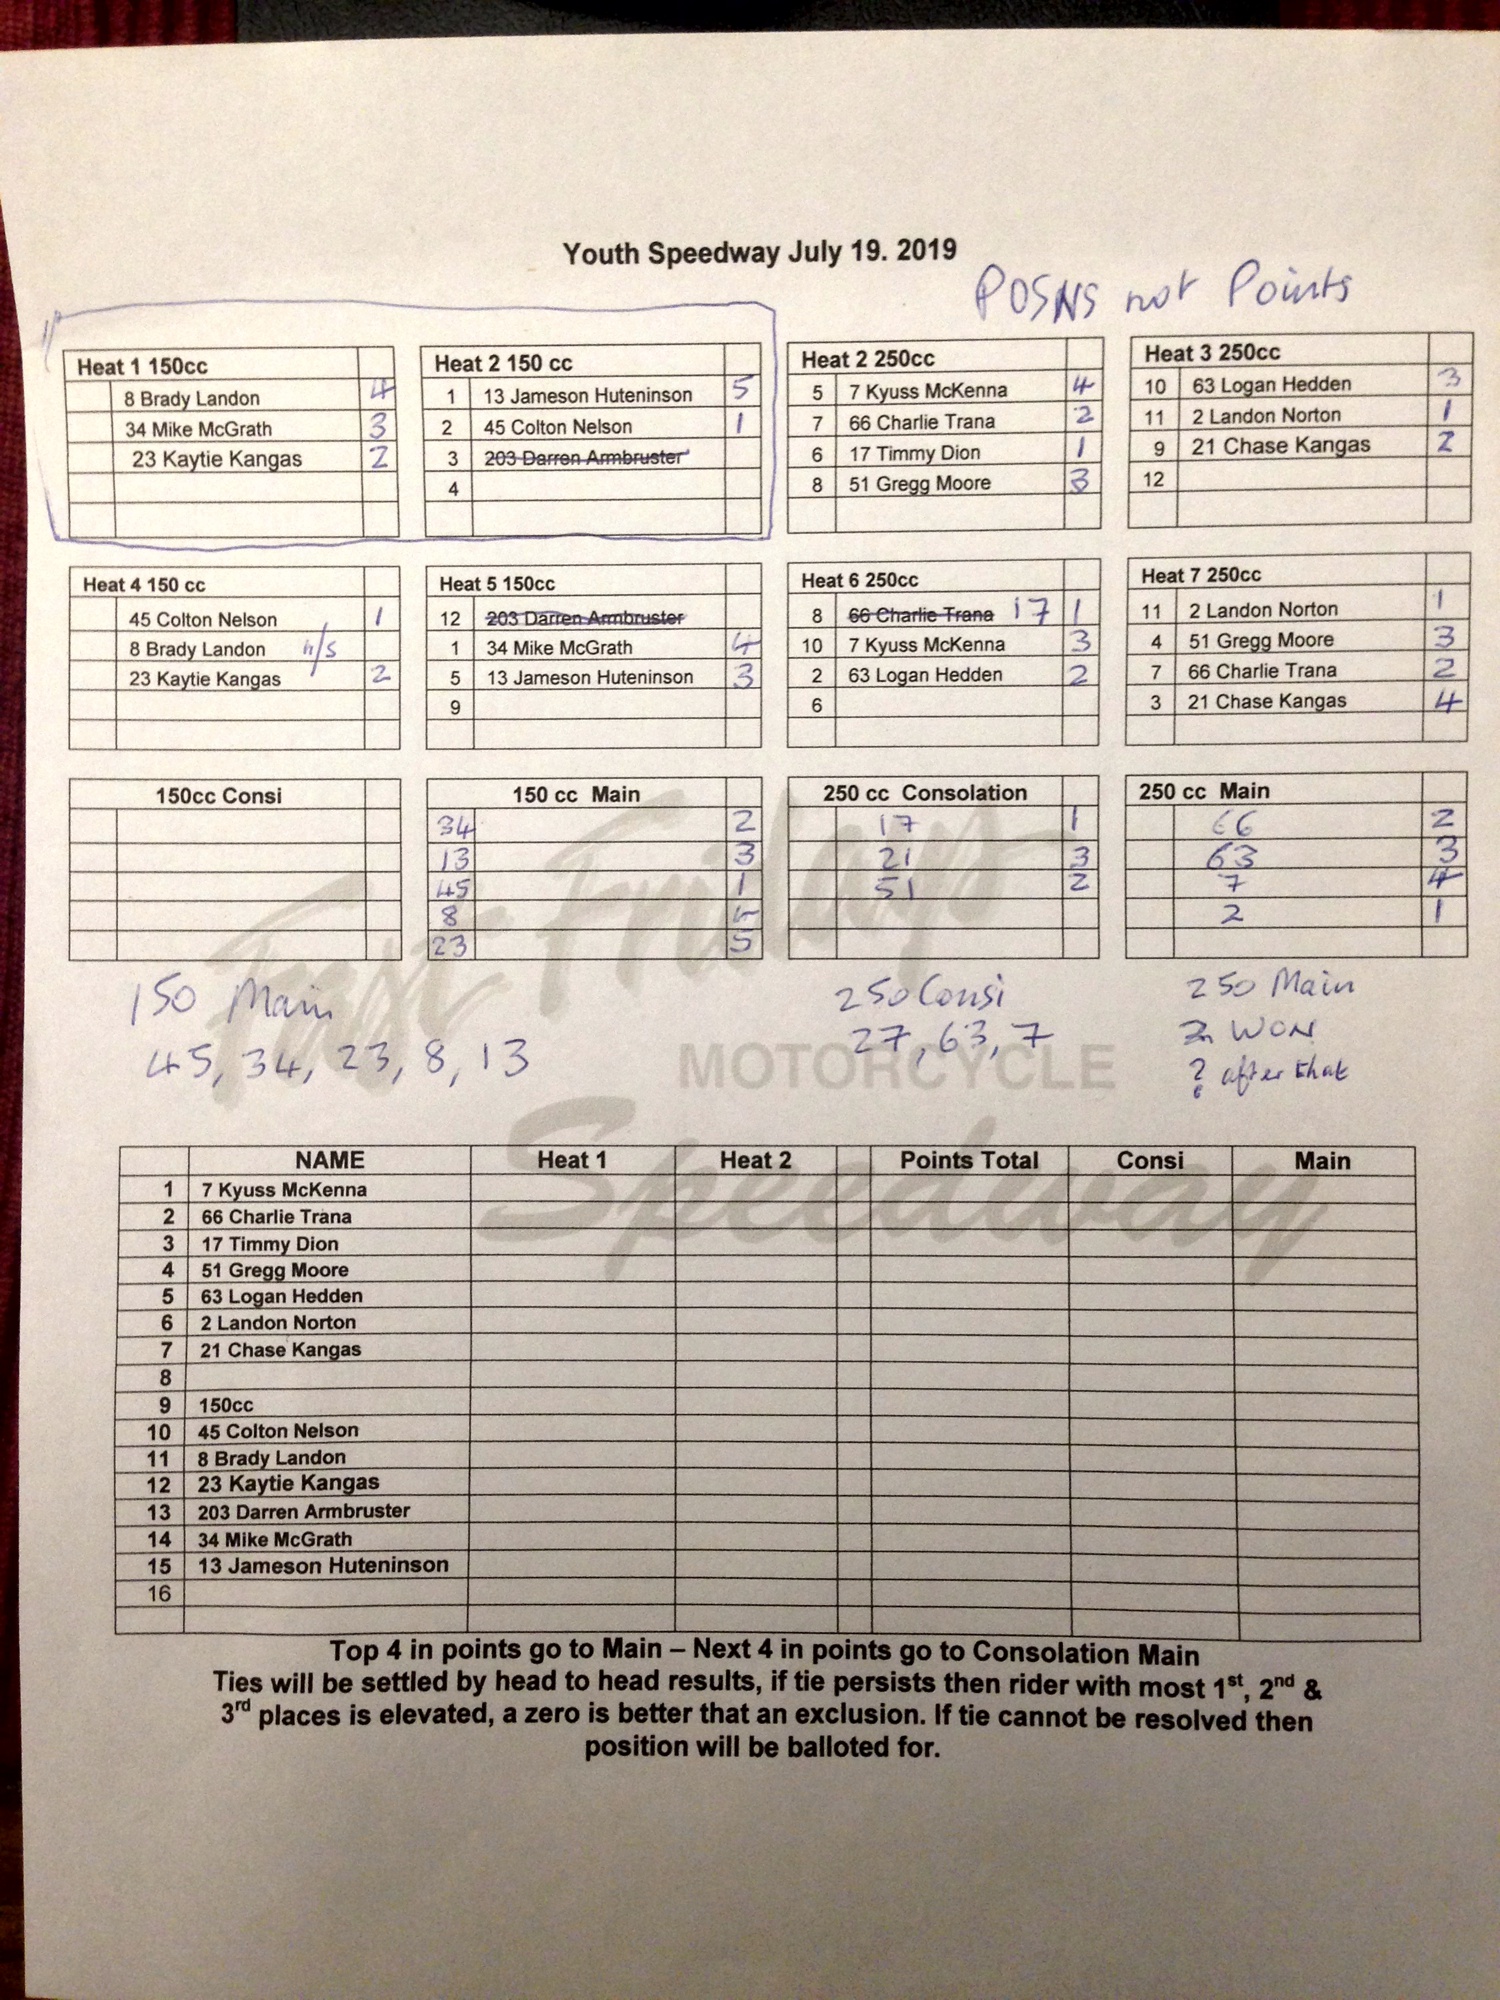 Youth Speedway July 19. 2019
POSNS not Points
Heat 1 150cc
8 Brady Landon 4
34 Mike McGrath 3
23 Kaytie Kangas 2
Heat 2 150 cc
1 13 Jameson Huteninson 5
2 45 Colton Nelson 1
3 203 Darren Armbruster
4
Heat 2 250cc
5 7 Kyuss McKenna 4
7 66 Charlie Trana 2
6 17 Timmy Dion 1
8 51 Gregg Moore 3
Heat 3 250cc
10 63 Logan Hedden 3
11 2 Landon Norton 1
9 21 Chase Kangas 2
12
Heat 4 150 cc
45 Colton Nelson 1
8 Brady Landon n/s
23 Kaytie Kangas 2
Heat 5 150cc
12 203 Darren Armbruster
1 34 Mike McGrath 4
5 13 Jameson Huteninson 3
9
Heat 6 250cc
8 66 Charlie Trana 17 1
10 7 Kyuss McKenna 3
2 63 Logan Hedden 2
6
Heat 7 250cc
11 2 Landon Norton 1
4 51 Gregg Moore 3
7 66 Charlie Trana 2
3 21 Chase Kangas 4
150cc Consi
150 cc Main
34 2
13 3
45 1
8 4
23 5
250 cc Consolation
17 1
21 3
51 2
250 cc Main
66 2
63 3
7 4
2 1
150 Main
45, 34, 23, 8, 13
250 Consi
27, 63, 7
250 Main
2 WON
? after that
Fast Fridays
MOTORCYCLE
Speedway
NAME Heat 1 Heat 2 Points Total Consi Main
1 7 Kyuss McKenna
2 66 Charlie Trana
3 17 Timmy Dion
4 51 Gregg Moore
5 63 Logan Hedden
6 2 Landon Norton
7 21 Chase Kangas
8
9 150cc
10 45 Colton Nelson
11 8 Brady Landon
12 23 Kaytie Kangas
13 203 Darren Armbruster
14 34 Mike McGrath
15 13 Jameson Huteninson
16
Top 4 in points go to Main – Next 4 in points go to Consolation Main
Ties will be settled by head to head results, if tie persists then rider with most 1st, 2nd &
3rd places is elevated, a zero is better that an exclusion. If tie cannot be resolved then
position will be balloted for.